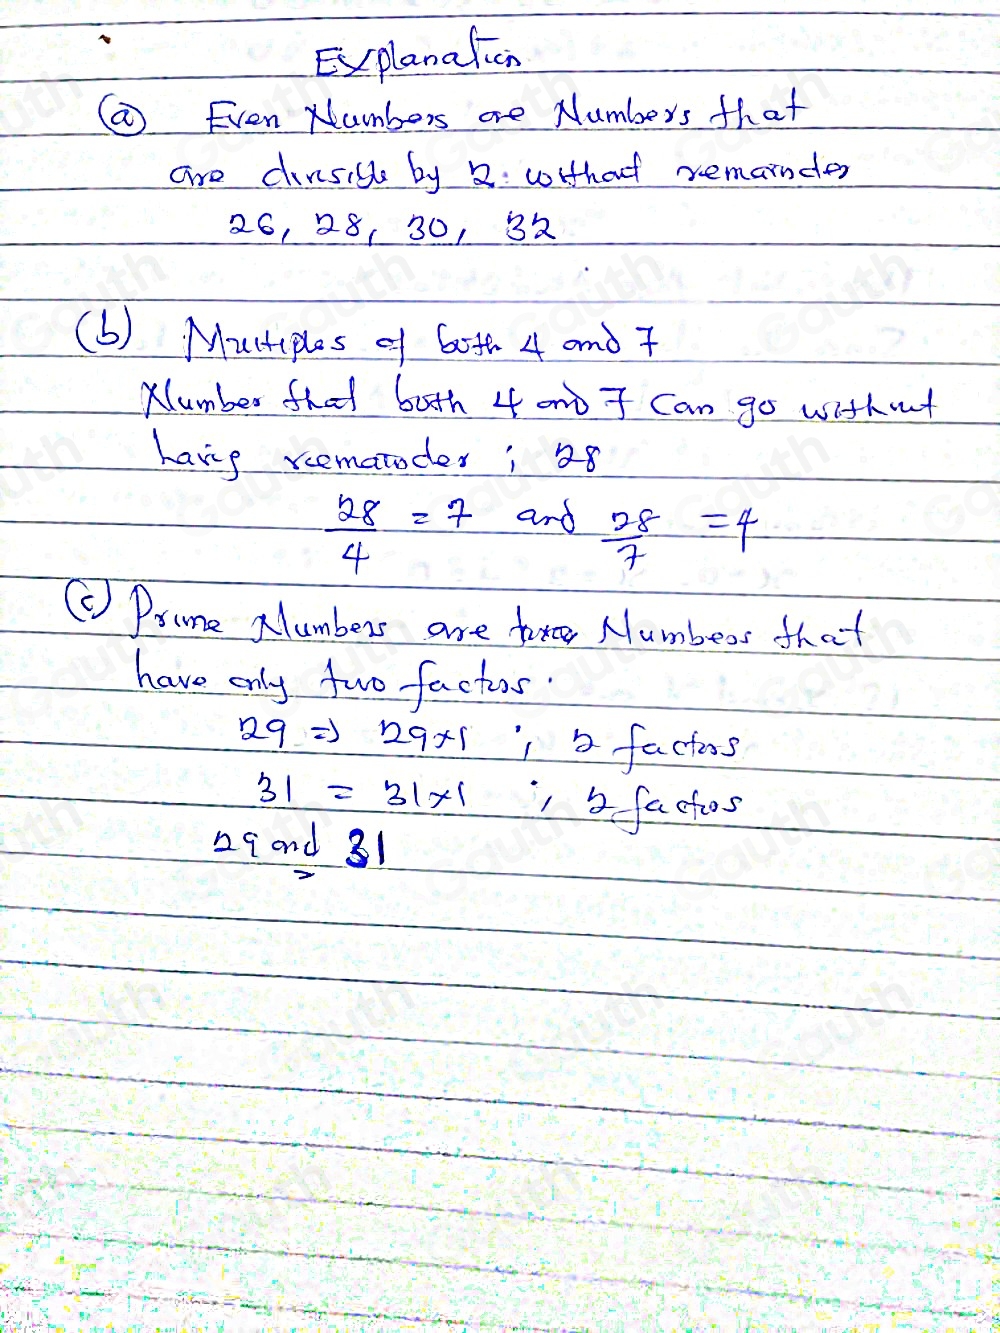 Explanation
(a) Even Numbers are Numbers that
are divisible by 2. without remainder
26, 28, 30, 32
(b) Multiples of both 4 and 7
Number that both 4 and 7 can go without
having remainder ; 28
28/4 = 7 and 28/7 = 4
(c) Prime Numbers are Numbers that
have only two factors.
29 => 29×1 ; 2 factors
31 = 31×1 ; 2 factors
29 and 31